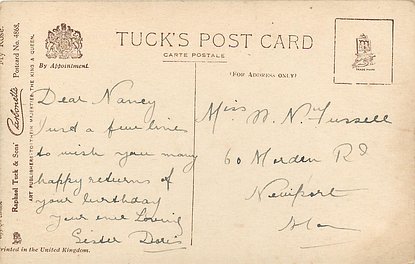 TUCK'S POST CARD
CARTE POSTALE
(FOR ADDRESS ONLY)
By Appointment.
TRADE MARK
Carbonette
Postcard No. 4868.
Raphael Tuck & Sons
ART PUBLISHERS TO THEIR MAJESTIES THE KING & QUEEN.
Printed in the United Kingdom.
Dear Nancy
Just a few lines
to wish you many
happy returns of
your birthday
Your ever Loving
Sister Doris
Miss N. Nussell
60 Morden Rd
Newport
Mon